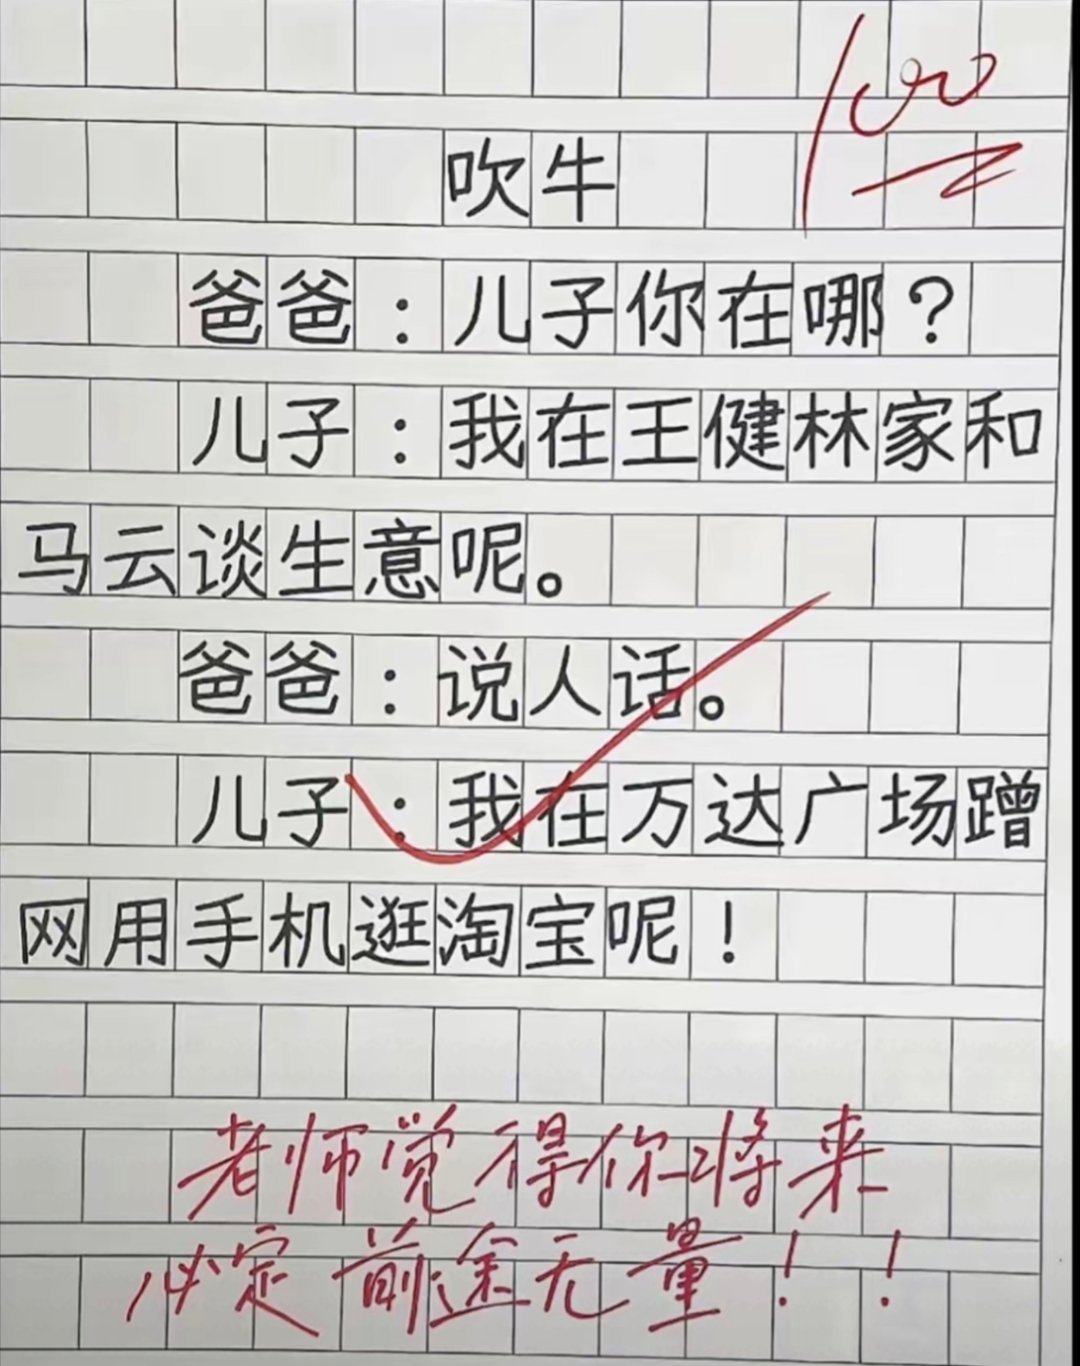 100
吹牛
爸爸：儿子你在哪？
儿子：我在王健林家和
马云谈生意呢。
爸爸：说人话。
儿子：我在万达广场蹭
网用手机逛淘宝呢！
老师觉得你将来
必定前途无量！！